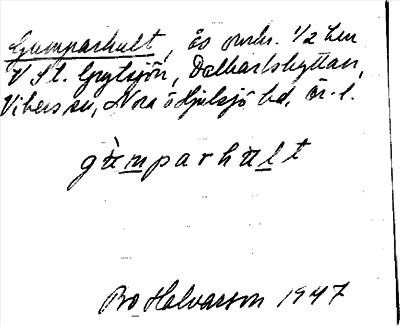 Gumparhult, ås omkr. 1/2 km
V St. Grytsjön, Dalkarlshyttan,
Vikers sn, Nora o Hjulsjö bd, Ör. l.
gùmparhùlt
Bo Halvarson 1947